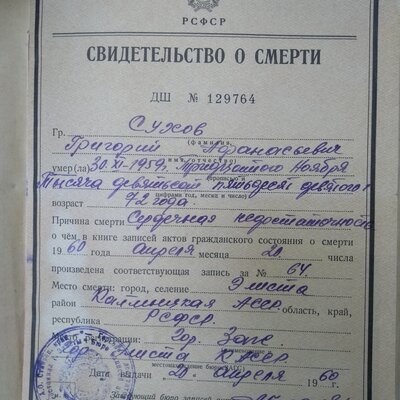 РСФСР
СВИДЕТЕЛЬСТВО О СМЕРТИ
ДШ № 129764
Гр. Сухов
(фамилия,
Григорий Афанасьевич
имя, отчество)
умер(ла) 30.XI-1959г. тридцатого Ноября
(прописью)
Тысяча девятьсот пятьдесят девятого
цифрами год, месяц и число)
возраст 72 года
Причина смерти Сердечная недостаточность
о чём в книге записей актов гражданского состояния о смерти
1960 года апреля месяца 20 числа
произведена соответствующая запись за № 64
Место смерти: город, селение Элиста
район Калмыцкая АССР. область, край,
республика РСФСР.
регистрации: Гор. Загс.
гор. Элиста КАССР
местонахождение бюро ЗАГС
Дата выдачи 20 апреля 1960
Заведующий бюро записей